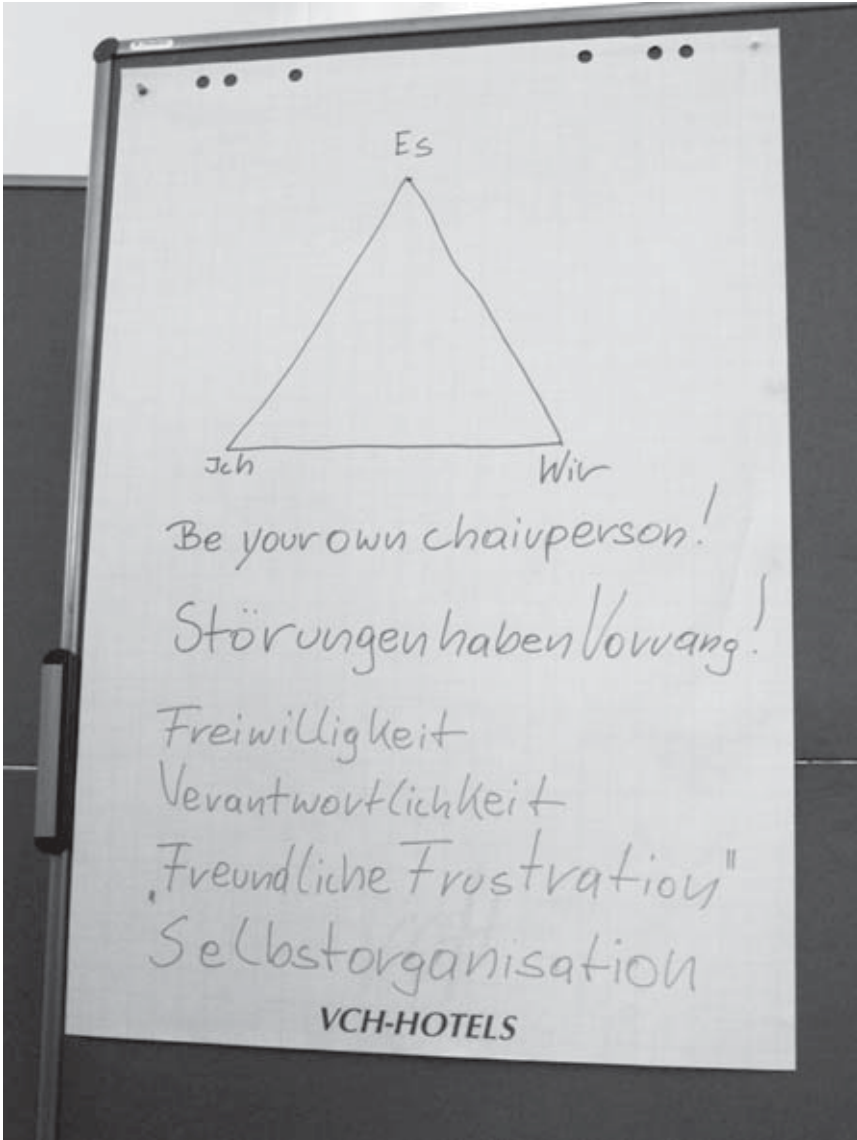 Es
Ich Wir
Be your own chairperson!
Störungen haben Vorrang!
Freiwilligkeit
Verantwortlichkeit
„Freundliche Frustration"
Selbstorganisation
VCH-HOTELS